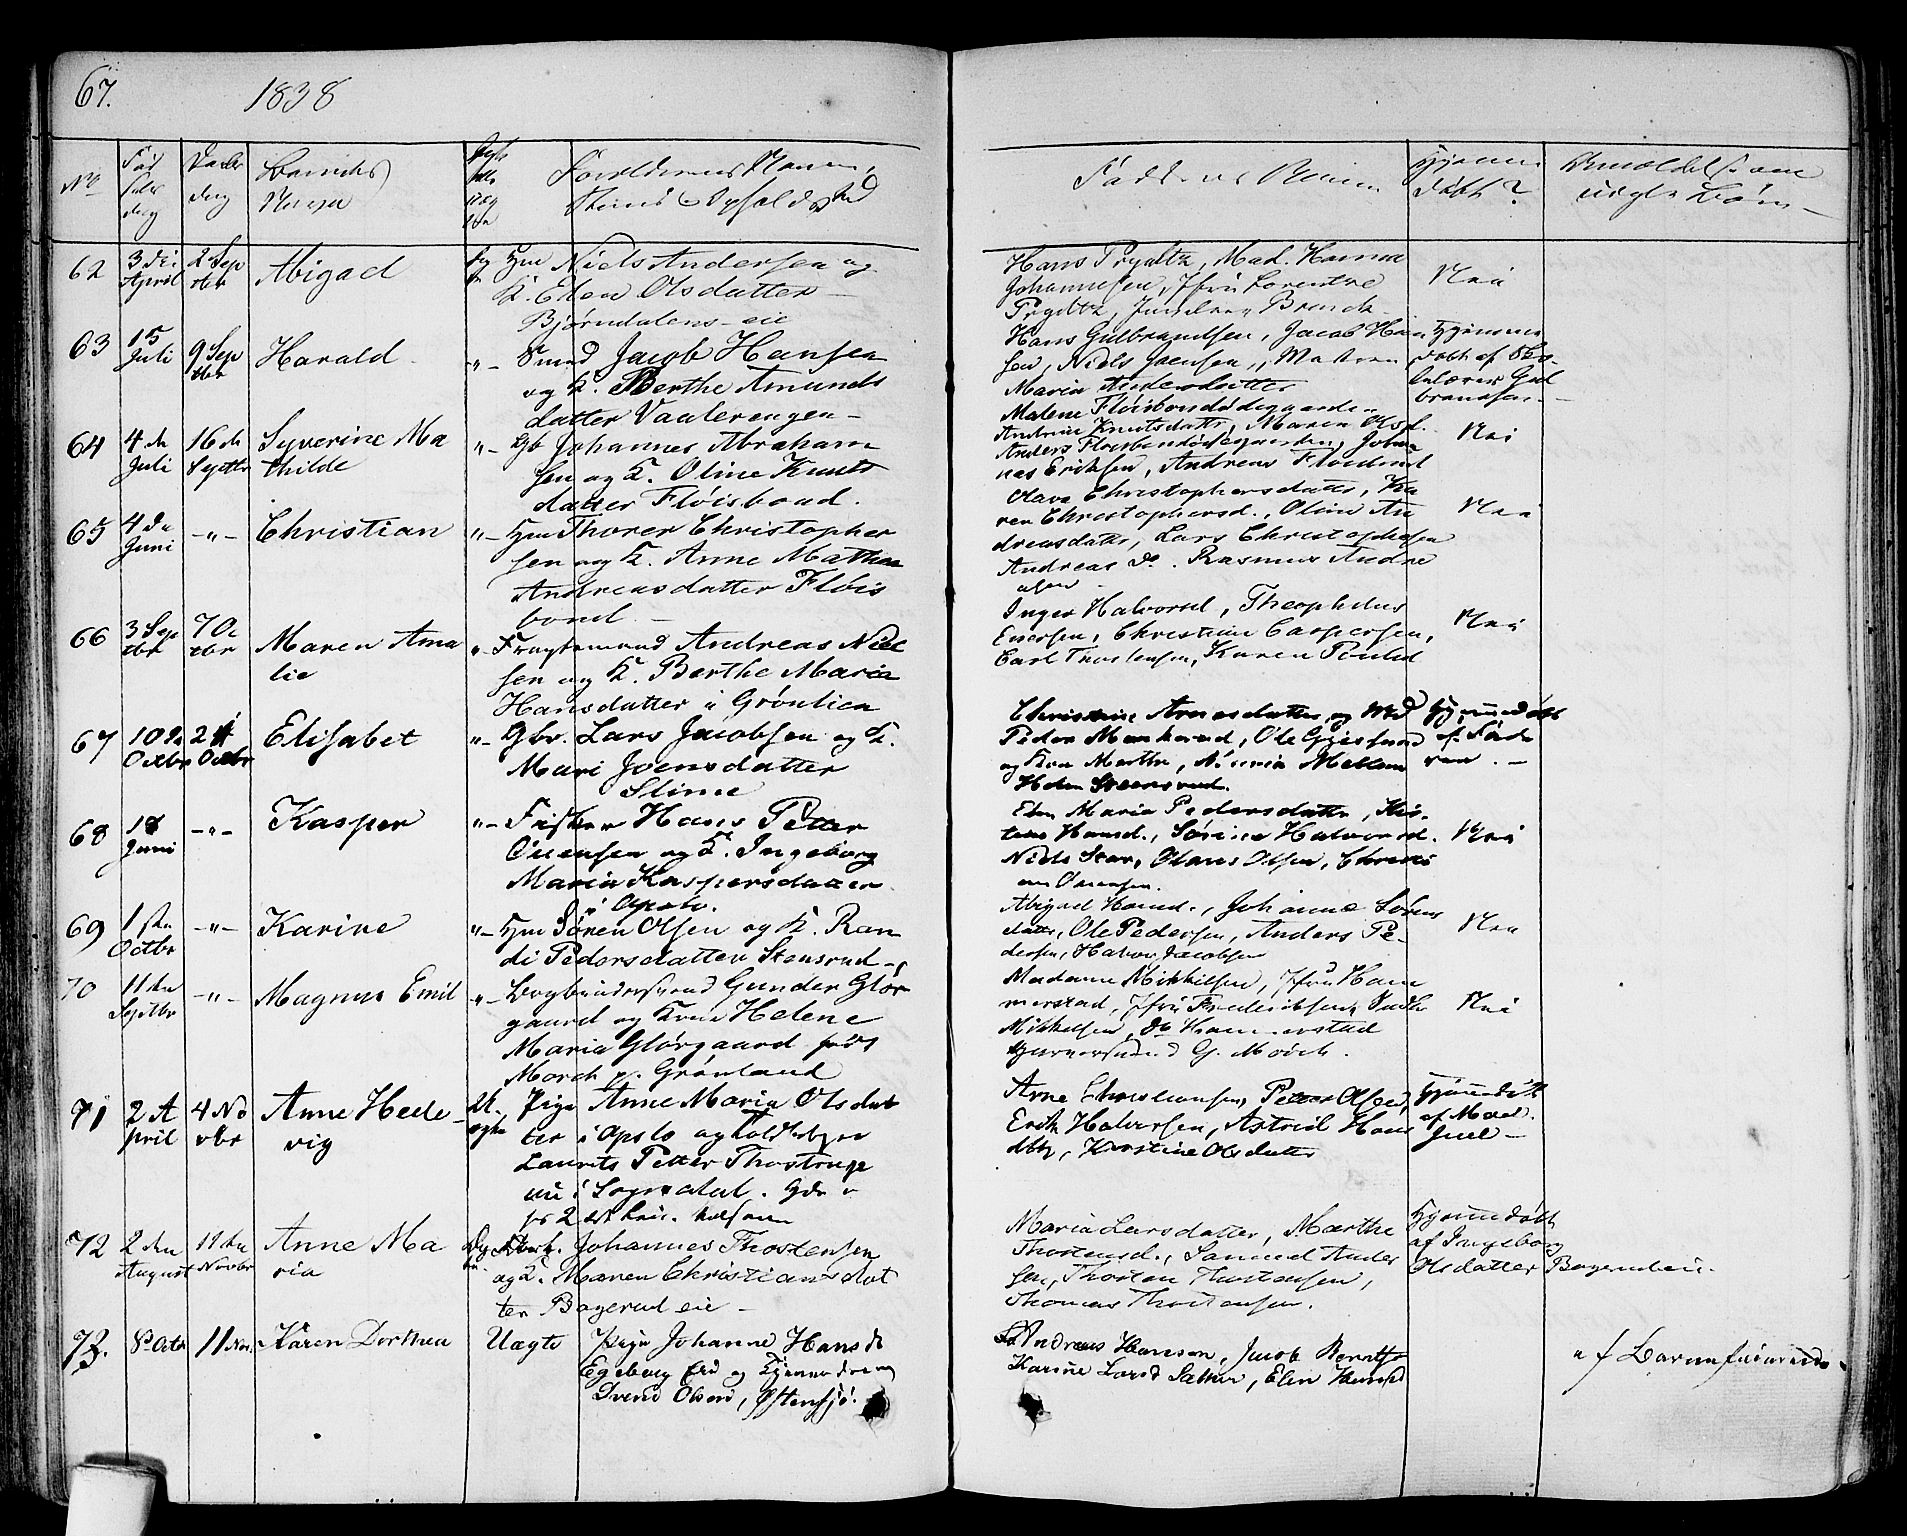 67. 1838
No
Barnets
Navn
Forældrenes Navn,
Stand & Opholdssted
Faddernes Navne
Hjemme
døbt?
Anmeldelse om
uægte Børn
62 3die April 2 Septbr Abigael Hm Niels Andersen og
K. Elen Olsdatter
Bjørndalens-eie
Hans Prydtz, Mad. Hanna
Johannesen, Jfru Lorentze
Prydtz,
Nei
63 15 Juli 9 Septbr Harald "- Smed Jacob Hansen
og K. Berthe Amunds
datter Vaalerengen -
Hans Gulbrandsen, Jacob Han
sen, Niels Joensen, Madam
Maria Andersdatter
Malene
Hjemme
døbt af Sko-
lelærer Gul
brandsen
64 4de Juli 16de Septbr Syverine Ma
thilde "- Gb Johannes Abraham
sen og K. Oline Knuts
datter Fløisbond.
Andrine Knutsdattr, Maria Olsd.
Anders Johan
nes Eriksen, Andreas
Nei
65 4de Juni -"- Christian "- Hm Thorer Christopher
sen og K. Anne Mathea
Andreasdatter Fløis
bond. -
Olava Christophersdatter, Ka
ren Christophersd., Oline An
dreasdattr, Lars Christophersen
Andreas do. Rasmus Andre
asen
Nei
66 3 Septbr 7 Octbr Maren Ama
lie "- Fragtemand Andreas Niel
sen og K. Berthe Maria
Hansdatter i Grønlien
Inger Halvorsd, Theophilus
Enersen, Christine Caspersen,
Carl Thorstensen, Karen Poulsd
Nei
67 10de Octbr Octbr Elisabet "- Gbr. Lars Jacobsen og K.
Mari Joensdatter
Slime
Christine Arnesdatter og
Peder Ole
og Kone Marthe, Maria Mellem
Helen Steensrud.
Hjemmedøbt
af Fade
ren. -
68 Juni -"- Kasper "- Fisker Hans Petter
Ouensen og K. Ingeborg
Maria Kaspersdatter
i Opslo.
Elen Maria Pedersdatter, Kis-
tine Hansd., Sørine Halvorsd.
Niels Olaus Olsen, Christi
an Ouensen.
Nei
69 1ste Octbr -"- Karine "- Hm Søren Olsen og K. Ran
di Pedersdatter Stensrud
Abigael Hansd., Johanne Sørens
dattr, Ole Pedersen, Anders Pe-
dersen, Halvor Jacobsen
Nei
70 11te Septbr -"- Magnus Emil "- Bogbindersvend Gunder Glør
gaard og Kone Helene
Maria Glørgaard født
Morch p. Grønland
Madame Mikkelsen, Jfru Ham
merstad, Jfru Frederiksen,
Mikkelsen, do Hammerstad
Garversvend G. Mörch.
Nei
71 2 April 4 Novbr Anne Hede
vig Uægte Pige Anne Maria Olsdat
ter i Opslo og
Laurits Petter Thostrup
nu i Sogndal.
Arne Christiansen, Petter Olsen,
Erik Halvorsen, Astrid Hans
dtr, Kirstine Olsdatter
Hjemmedøbt
af Mad.
Juel -
72 2den August 11te Novbr Anne Ma
ria Johannes Thostensen
og K. Maren Christiansdat
ter Bagerud eie -
Maria Larsdatter, Marthe
Thostensd., Samuel Ander
sen, Thosten Thostensen,
Thomas Thostensen.
Hjemmedøbt
af Ingeborg
Olsdatter
73. 8 Octr 11 Nov. Karen Dorthea Uægte Pige Johanne Hansdr
Egeberg Eie og
Svend Olsen, Østensjø.
Andreas Hansen, Jacob
Karine Larsd Elen Hansd
af Barnefaderen